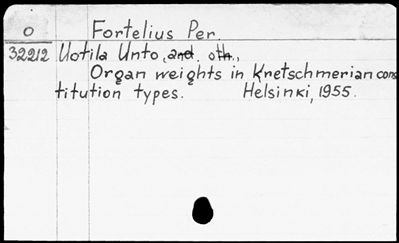 O Fortelius Per.
32212 Uotila Unto, and. oth.,
Organ weights in Kretschmerian cons
titution types. Helsinki, 1955.